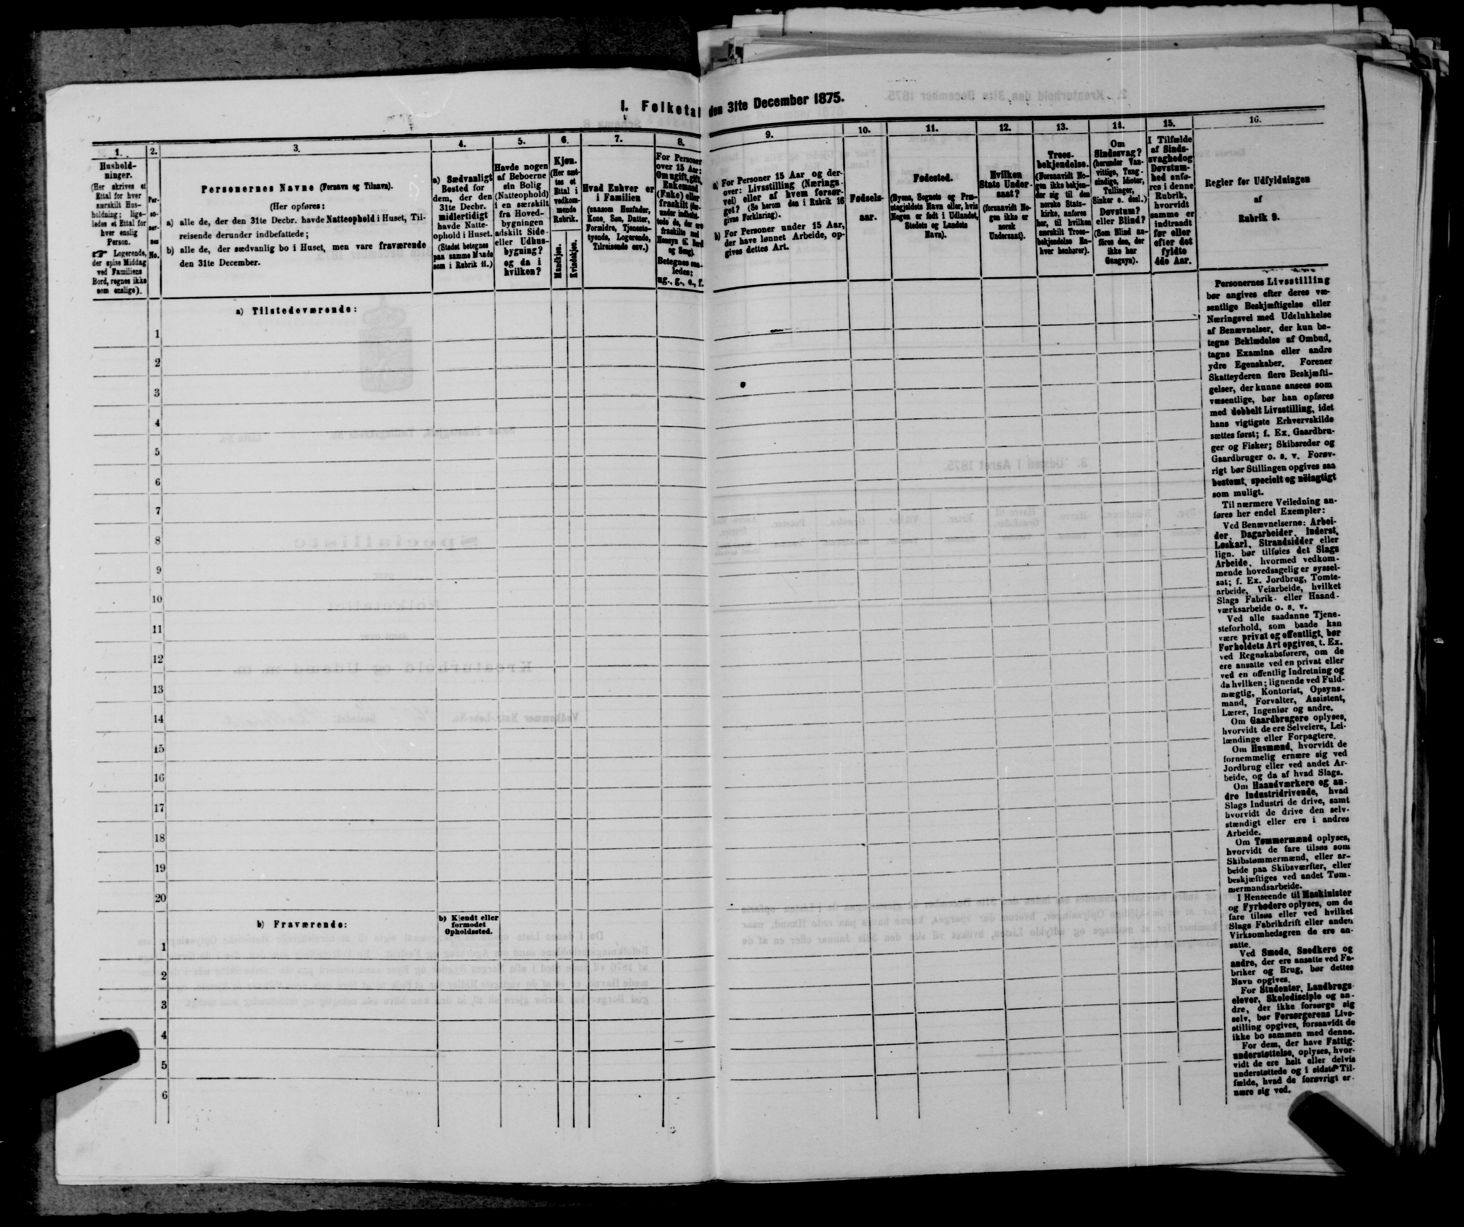 I. Folketal den 31te December 1875.
1.
Hushold-
ninger.
(Her skrives et
Ettal for hver
særskilt Hus-
holdning; lige-
ledes et Ettal for
hver enslig
Person.
Logerende,
der spise Middag
ved Familiens
Bord, regnes ikke
som enslige).
2.
Per-
so-
ner-
nes
No.
3.
Personernes Navne (Fornavn og Tilnavn).
(Her opføres:
a) alle de, der den 31te Decbr. havde Natteophold i Huset, Til-
reisende derunder indbefattede;
b) alle de, der sædvanlig bo i Huset, men vare fraværende
den 31te December.
4.
a) Sædvanligt
Bosted for
dem, der den
31te Decbr.
midlertidigt
havde Natte-
ophold i Huset.
(Stedet betegnes
paa samme Maade
som i Rubrik 11.)
5.
Havde nogen
af Beboerne
sin Bolig
(Natteophold)
i en særskilt
fra Hoved-
bygningen
adskilt Side-
eller Udhus-
bygning?
og da i
hvilken?
6.
Kjøn.
(Her sæt-
tes et
Ettal i
vedkom-
mende
Rubrik.
Mandkjøn.
Kvindekjøn.
7.
Hvad Enhver er
i Familien
(saasom Husfader,
Kone, Søn, Datter,
Forældre, Tjeneste-
tyende, Logerende,
Tilreisende osv.)
8.
For Personer
over 15 Aar:
Om ugift, gift,
Enkemand
(Enke) eller
fraskilt
Betegnes saa-
ledes:
ug., g., e., f.
9.
a) For Personer 15 Aar og der-
over: Livsstilling (Nærings-
vei) eller af hvem forsør-
get? (Se herom den i Rubrik 16
givne Forklaring).
b) For Personer under 15 Aar,
der have lønnet Arbeide, op-
gives dettes Art.
10.
Fødsels-
aar.
11.
Fødested.
(Byens, Sognets og Præ-
stegjeldets Navn eller, hvis
Nogen er født i Udlandet,
Stedets og Landets
Navn).
12.
Hvilken
Stats Under-
saat?
(forsaavidt No-
gen ikke er
norsk
Undersaat).
13.
Troes-
bekjendelse.
(Forsaavidt No-
gen ikke bekjen-
der sig til den
norske Stats-
kirke, anføres
her, til hvilken
særskilt Troes-
bekjendelse He-
hver henhører).
14.
Om
Sindssvag?
(herunder Van-
vittige, Tung-
sindige, Idioter,
Tullinger,
Sinker o. desl.)
Døvstum?
eller Blind?
(Som Blind an-
føres den, der
ikke har
Gangsyn).
15.
I Tilfælde
af Sinds-
svaghed og
Døvstum-
hed anfø-
res i denne
Rubrik,
hvorvidt
samme er
indtraadt
før eller
efter det
fyldte
4de Aar.
16.
Regler for Udfyldningen
af
Rubrik 9.
Personernes Livsstilling
bør angives efter deres væ-
sentlige Beskjæftigelse eller
Næringsvei med Udelukkelse
af Benævnelser, der kun be-
tegne Beklædelse af Ombud,
tagne Examina eller andre
ydre Egenskaber. Forener
Skatteyderen flere Beskjæfti-
gelser, der kunne ansees som
væsentlige, bør han opføres
med dobbelt Livsstilling, idet
hans vigtigste Erhvervskilde
sættes først; f. Ex. Gaardbru-
ger og Fisker; Skibsreder og
Gaardbruger o. s. v. Forøv-
rigt bør Stillingen opgives saa
bestemt, specielt og nöiagtigt
som muligt.
Til nærmere Veiledning an-
føres her endel Exempler:
Ved Benævnelserne: Arbei-
der, Dagarbeider, Inderst,
Løskarl, Strandsidder eller
lign. bør tilføies det Slags
Arbeide, hvormed vedkom-
mende hovedsagelig er syssel-
sat; f. Ex. Jordbrug, Tomte-
arbeide, Veiarbeide, hvilket
Slags Fabrik- eller Haand-
værksarbeide o. s. v.
Ved alle saadanne Tjene-
steforhold, som baade kan
være privat og offentligt, bør
Forholdets Art opgives, t. Ex.
ved Regnskabsførere, om de
ere ansatte ved en privat eller
ved en offentlig Indretning og
da hvilken; lignende ved Fuld-
mægtig, Kontorist, Opsyns-
mand, Forvalter, Assistent,
Lærer, Ingeniør og andre.
Om Gaardbrugere oplyses,
hvorvidt de ere Selveiere, Lei-
lændinge eller Forpagtere.
Om Husmænd, hvorvidt de
fornemmelig ernære sig ved
Jordbrug eller ved andet Ar-
beide, og da af hvad Slags.
Om Haandværkere og an-
dre Industridrivende, hvad
Slags Industri de drive, samt
hvorvidt de drive den selv-
stændigt eller ere i andres
Arbeide.
Om Tømmermænd oplyses,
hvorvidt de fare tilsøs som
Skibstømmermænd, eller ar-
beide paa Skibsværfter, eller
beskjæftiges ved andet Tøm-
mermandsarbeide.
I Henseende til Maskinister
og Fyrbødere oplyses, om de
fare tilsøs eller ved hvilket
Slags Fabrikdrift eller anden
Virksomhedsgren de ere an-
satte.
Ved Smede, Snedkere og
andre, der ere ansatte ved Fa-
briker og Brug, bør dettes
Navn opgives.
For Studenter, Landbrugs-
elever, Skoledisciple og an-
dre, der ikke forsørge sig
selv, bør Forsørgerens Livs-
stilling opgives, forsaavidt de
ikke bo sammen med denne.
For dem, der have Fattig-
understøttelse, oplyses, hvor-
vidt de ere helt eller delvis
understøttede og i sidste Til-
fælde, hvad de forøvrigt er-
nære sig ved.
a) Tilstedeværende:
1
2
3
4
5
6
7
8
9
10
11
12
13
14
15
16
17
18
19
20
b) Fraværende:
b) Kjendt eller
formodet
Opholdssted.
1
2
3
4
5
6